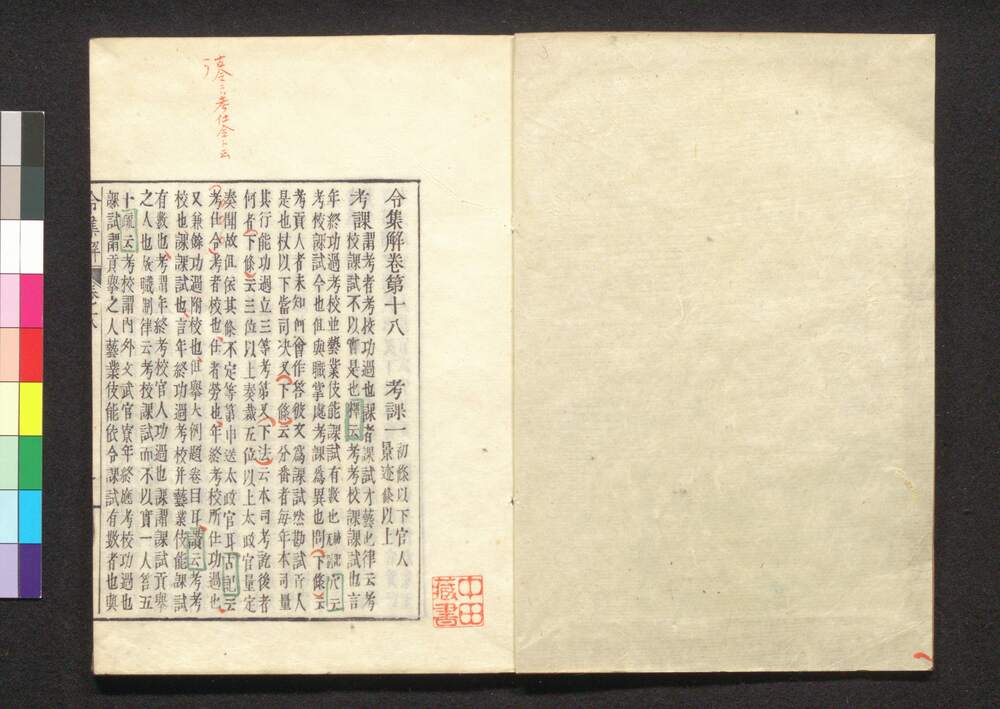 令集解卷第十八　考課一
初條以下官人
景迹條以上
考課
謂考者考校功過也課者課試才藝也律云考
校課試不以實是也釋云考考校課課試也言
年終功過考校並藝業伎能課試有數也
穴云
考校課試令也但與職掌處考課爲異也問下條云
考貢人者未知何曾作答彼文爲課試然勘試貢人
是也杖以下皆司决又下條云分番者毎年本司量
其行能功過立三等考第又下法云本司考訖後者
何者下條云三位以上奏裁五位以上太政官量定
奏聞故但依其條不定等第申送太政官耳古記云
考仕令考者校也仕者勞也年終考校所仕功過也
又兼餘功過附校也但擧大例題卷目耳讃云考考
校也課課試也言年終功過考校并藝業伎能課試
有數也考謂年終考校官人功過也課謂課試貢擧
之人也職制律云考校課試而不以實一人笞五
十疏云考校謂内外文武官寮年終應考校功過也
課試謂貢擧之人藝業伎能依令課試有數者也與
令集解
中田
藏書